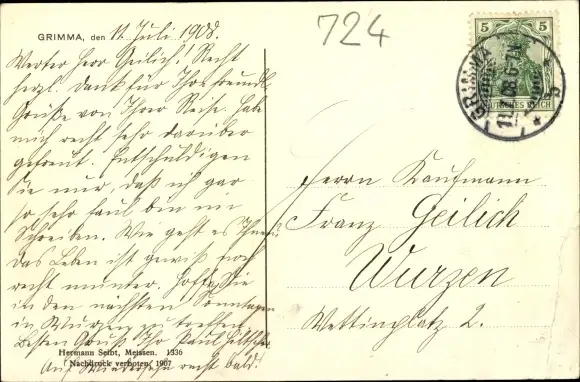 724
GRIMMA, den 11. Juli 1908.
Werter Herr Geilich! Recht
herzl. Dank für Ihre freundl.
Grüße von Ihrer Reise. Habe
mich recht sehr darüber
gefreut. Entschuldigen
Sie nur, daß ich gar
so sehr faul bin im
Schreiben. Wie geht es Ihnen?
Das Leben ist gewiß noch
recht munter. Hoffe Sie
in den nächsten Sonntagen
in Wurzen zu treffen.
Besten Gruß Ihr Paul
Auf Wiedersehn recht bald!
Hermann Seibt, Meissen. 1336
Nachdruck verboten, 1907
5 5
DEUTSCHES REICH
GRIMMA
Herrn Kaufmann
Franz Geilich
Wurzen
Wettinplatz 2.